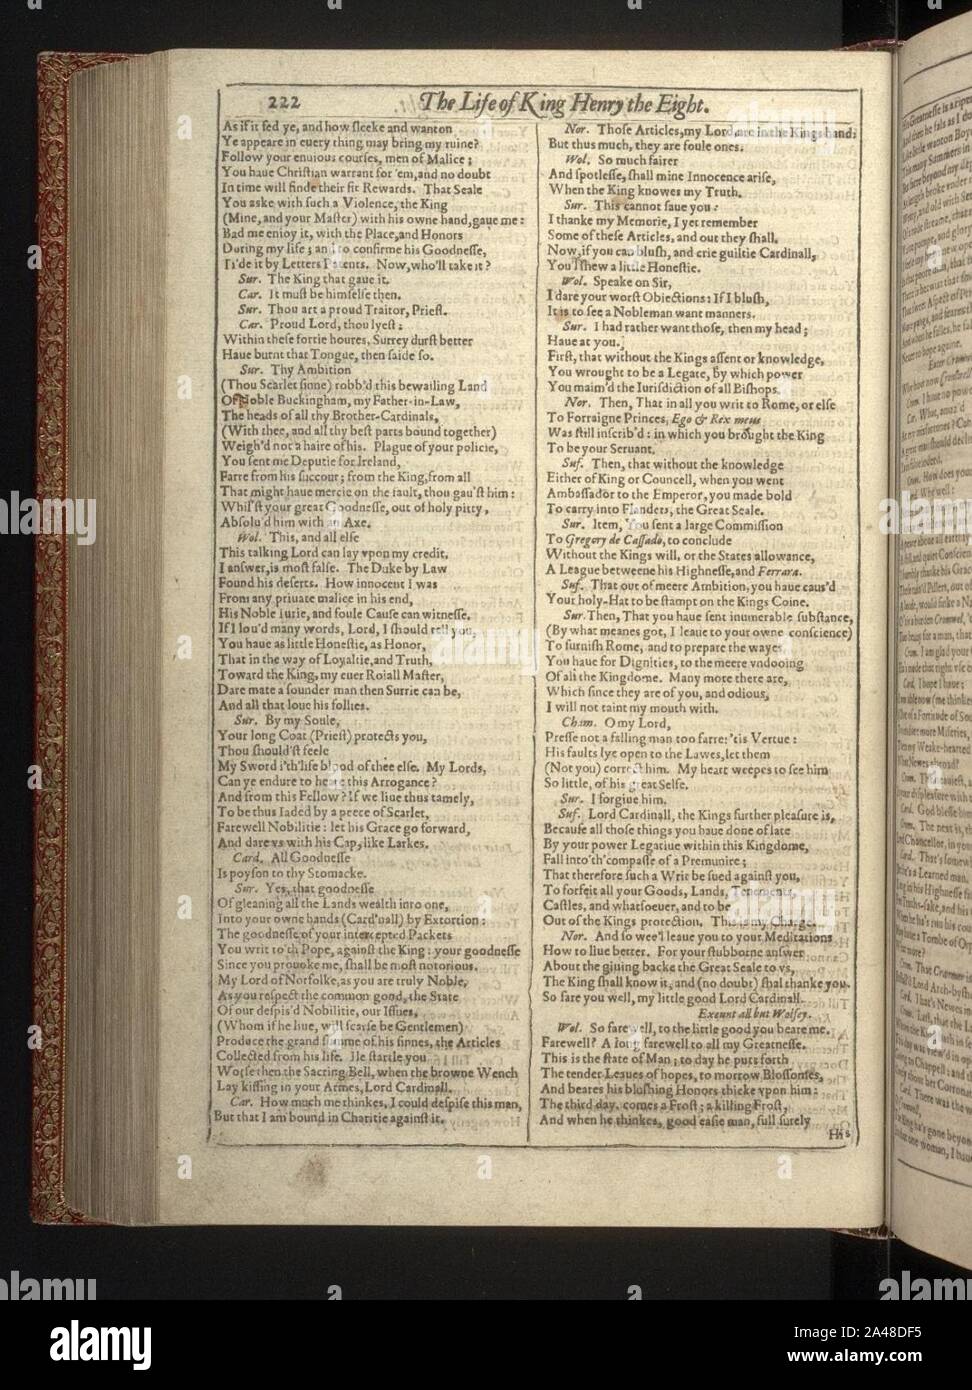 222
The Life of King Henry the Eight.
As if it fed ye, and how sleeke and wanton
Ye appeare in euery thing may bring my ruine?
Follow your enuious courses, men of Malice;
You haue Christian warrant for 'em, and no doubt
In time will finde their fit Rewards. That Seale
You aske with such a Violence, the King
(Mine, and your Master) with his owne hand, gaue me:
Bad me enioy it, with the Place, and Honors
During my life; and to confirme his Goodnesse,
Ti'de it by Letters Patents. Now, who'll take it?
Sur. The King that gaue it.
Car. It must be himselfe then.
Sur. Thou art a proud Traitor, Priest.
Car. Proud Lord, thou lyest:
Within these fortie houres, Surrey durst better
Haue burnt that Tongue, then saide so.
Sur. Thy Ambition
(Thou Scarlet sinne) robb'd this bewailing Land
Of Noble Buckingham, my Father-in-Law,
The heads of all thy Brother-Cardinals,
(With thee, and all thy best parts bound together)
Weigh'd not a haire of his. Plague of your policie,
You sent me Deputie for Ireland,
Farre from his succour; from the King, from all
That might haue mercie on the fault, thou gau'st him:
Whil'st your great Goodnesse, out of holy pitty,
Absolu'd him with an Axe.
Wol. This, and all else
This talking Lord can lay vpon my credit,
I answer, is most false. The Duke by Law
Found his deserts. How innocent I was
From any priuate malice in his end,
His Noble Iurie, and foule Cause can witnesse.
If I lou'd many words, Lord, I should tell you,
You haue as little Honestie, as Honor,
That in the way of Loyaltie, and Truth,
Toward the King, my euer Roiall Master,
Dare mate a sounder man then Surrie can be,
And all that loue his follies.
Sur. By my Soule,
Your long Coat (Priest) protects you,
Thou should'st feele
My Sword i'th'life blood of thee else. My Lords,
Can ye endure to heare this Arrogance?
And from this Fellow? If we liue thus tamely,
To be thus Iaded by a peece of Scarlet,
Farewell Nobilitie: let his Grace go forward,
And dare vs with his Cap, like Larkes.
Card. All Goodnesse
Is poyson to thy Stomacke.
Sur. Yes, that goodnesse
Of gleaning all the Lands wealth into one,
Into your owne hands (Card'nall) by Extortion:
The goodnesse of your intercepted Packets
You writ to'th Pope, against the King: your goodnesse
Since you prouoke me, shall be most notorious.
My Lord of Norfolke, as you are truly Noble,
As you respect the common good, the State
Of our despis'd Nobilitie, our Issues,
(Whom if he liue, will scarse be Gentlemen)
Produce the grand summe of his sinnes, the Articles
Collected from his life. Ile startle you
Worse then the Sacring Bell, when the browne Wench
Lay kissing in your Armes, Lord Cardinall.
Car. How much me thinkes, I could despise this man,
But that I am bound in Charitie against it.
Nor. Those Articles, my Lord, are in the Kings hand:
But thus much, they are foule ones.
Wol. So much fairer
And spotlesse, shall mine Innocence arise,
When the King knowes my Truth.
Sur. This cannot saue you:
I thanke my Memorie, I yet remember
Some of these Articles, and out they shall.
Now, if you can blush, and crie guiltie Cardinall,
You'l shew a little Honestie.
Wol. Speake on Sir,
I dare your worst Obiections: If I blush,
It is to see a Nobleman want manners.
Sur. I had rather want those, then my head;
Haue at you.
First, that without the Kings assent or knowledge,
You wrought to be a Legate, by which power
You maim'd the Iurisdiction of all Bishops.
Nor. Then, That in all you writ to Rome, or else
To Forraigne Princes, Ego & Rex meus
Was still inscrib'd: in which you brought the King
To be your Seruant.
Suf. Then, that without the knowledge
Either of King or Councell, when you went
Ambassador to the Emperor, you made bold
To carry into Flanders, the Great Seale.
Sur. Item, You sent a large Commission
To Gregory de Cassado, to conclude
Without the Kings will, or the States allowance,
A League betweene his Highnesse, and Ferrara.
Suf. That out of meere Ambition, you haue caus'd
Your holy-Hat to be stampt on the Kings Coine.
Sur. Then, That you haue sent inumerable substance,
(By what meanes got, I leaue to your owne conscience)
To furnish Rome, and to prepare the wayes
You haue for Dignities, to the meere vndooing
Of all the Kingdome. Many more there are,
Which since they are of you, and odious,
I will not taint my mouth with.
Cham. O my Lord,
Presse not a falling man too farre: 'tis Vertue:
His faults lye open to the Lawes, let them
(Not you) correct him. My heart weepes to see him
So little, of his great Selfe.
Sur. I forgiue him.
Suf. Lord Cardinall, the Kings further pleasure is,
Because all those things you haue done of late
By your power Legatiue within this Kingdome,
Fall into'th'compasse of a Premunire;
That therefore such a Writ be sued against you,
To forfeit all your Goods, Lands, Tenements,
Castles, and whatsoeuer, and to be
Out of the Kings protection. This is my Charge.
Nor. And so wee'l leaue you to your Meditations
How to liue better. For your stubborne answer
About the giuing backe the Great Seale to vs,
The King shall know it, and (no doubt) shal thanke you.
So fare you well, my little good Lord Cardinall.
Exeunt all but Wolsey.
Wol. So farewell, to the little good you beare me.
Farewell? A long farewell to all my Greatnesse.
This is the state of Man; to day he puts forth
The tender Leaues of hopes, to morrow Blossomes,
And beares his blushing Honors thicke vpon him:
The third day, comes a Frost; a killing Frost,
And when he thinkes, good easie man, full surely
His
alamy
Image ID: 2A48DF5
www.alamy.com